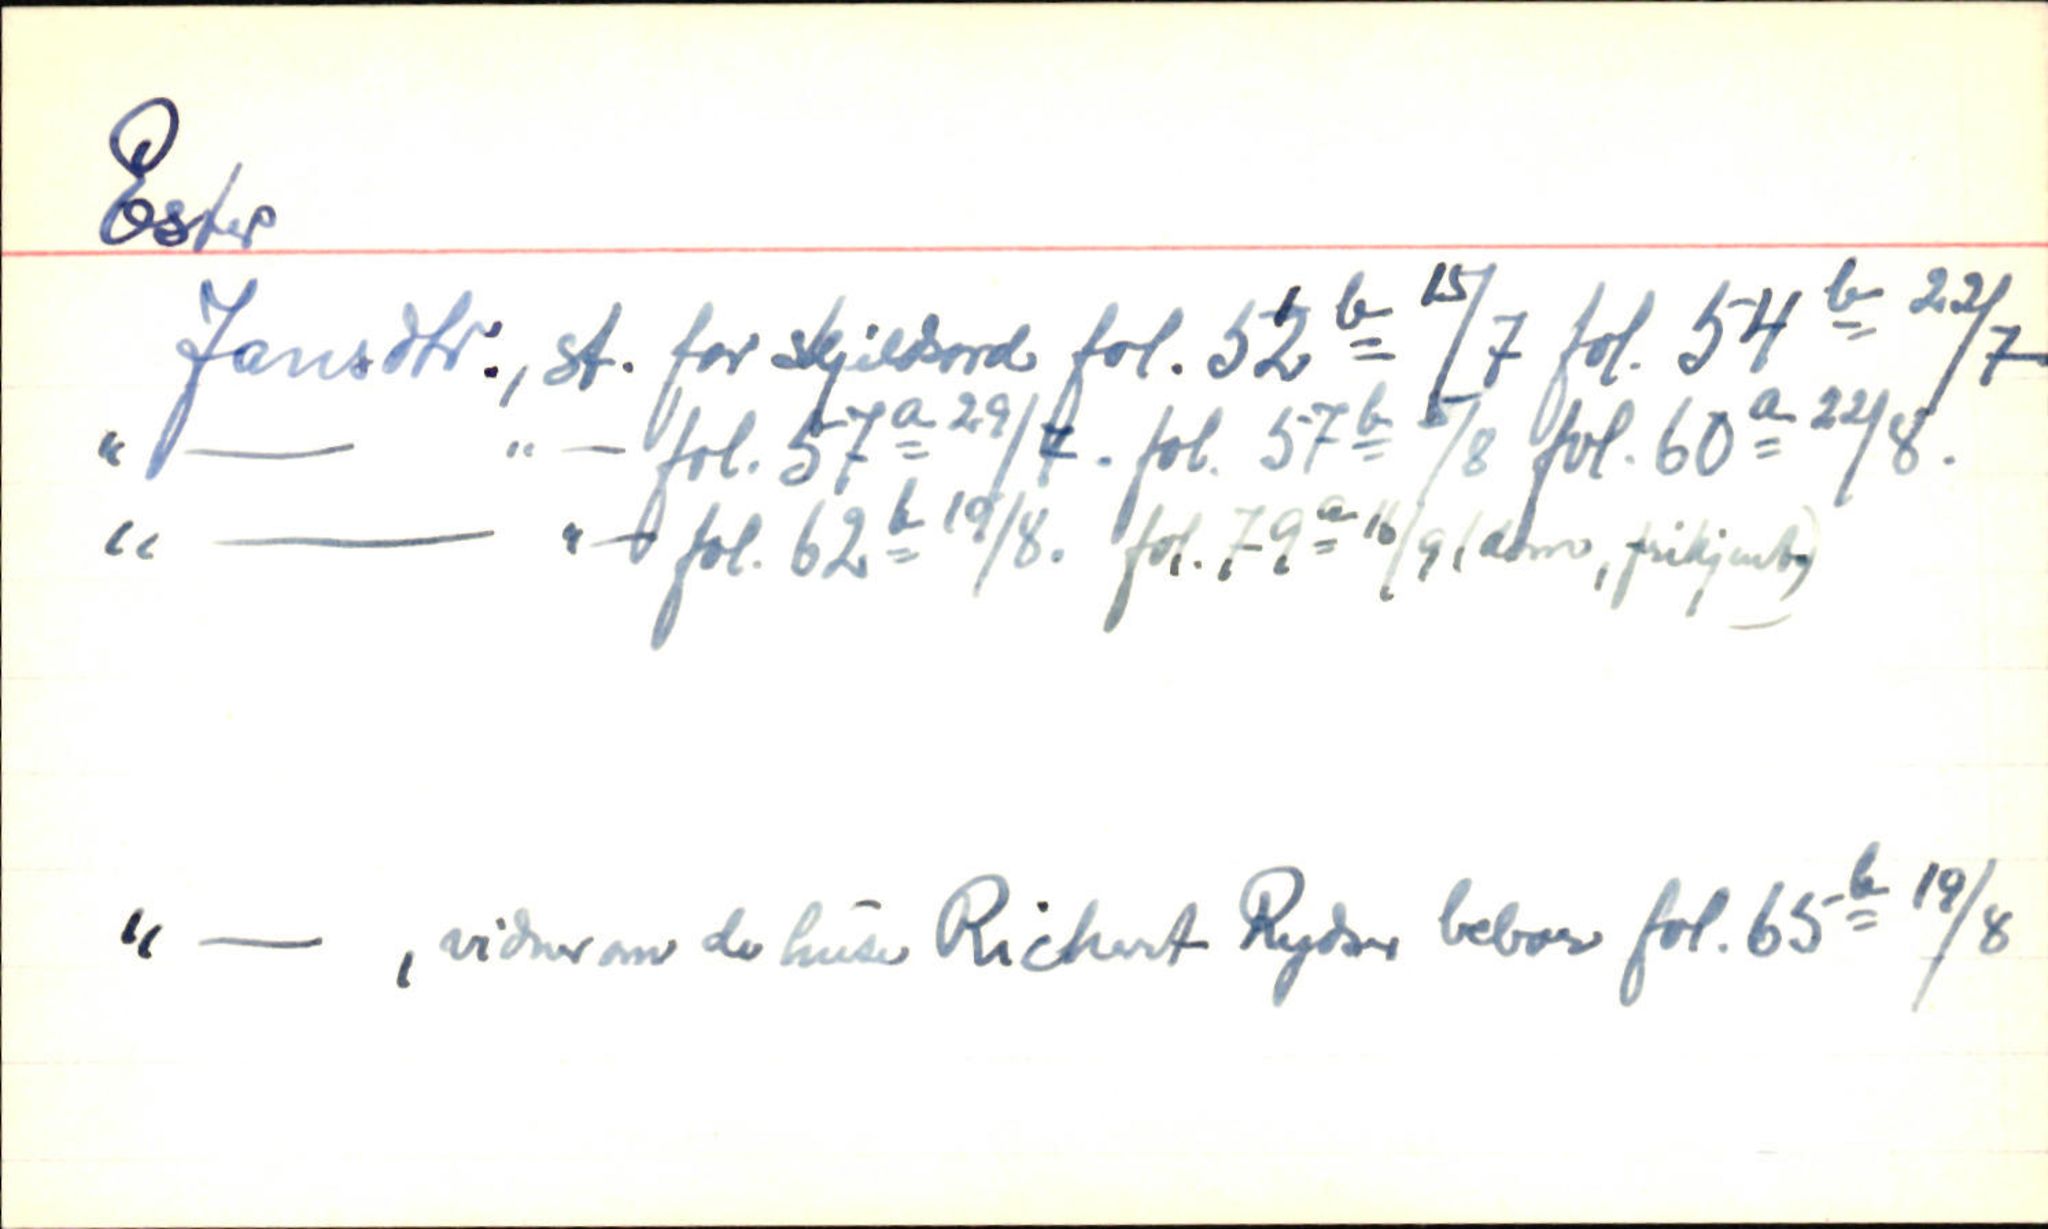 Ester
Jansdtr., st. for skjeldsord fol. 52 b 15/7 fol. 54 b 22/7
" — " — fol. 57 a 29/7. fol. 57 b 5/8 fol. 60 a 22/8.
" — " — fol. 62 b 19/8. fol. 79 a 16/9 (dom, frikjent)
" — , vidner om de huse Richert Ryder beboer fol. 65 b 19/8